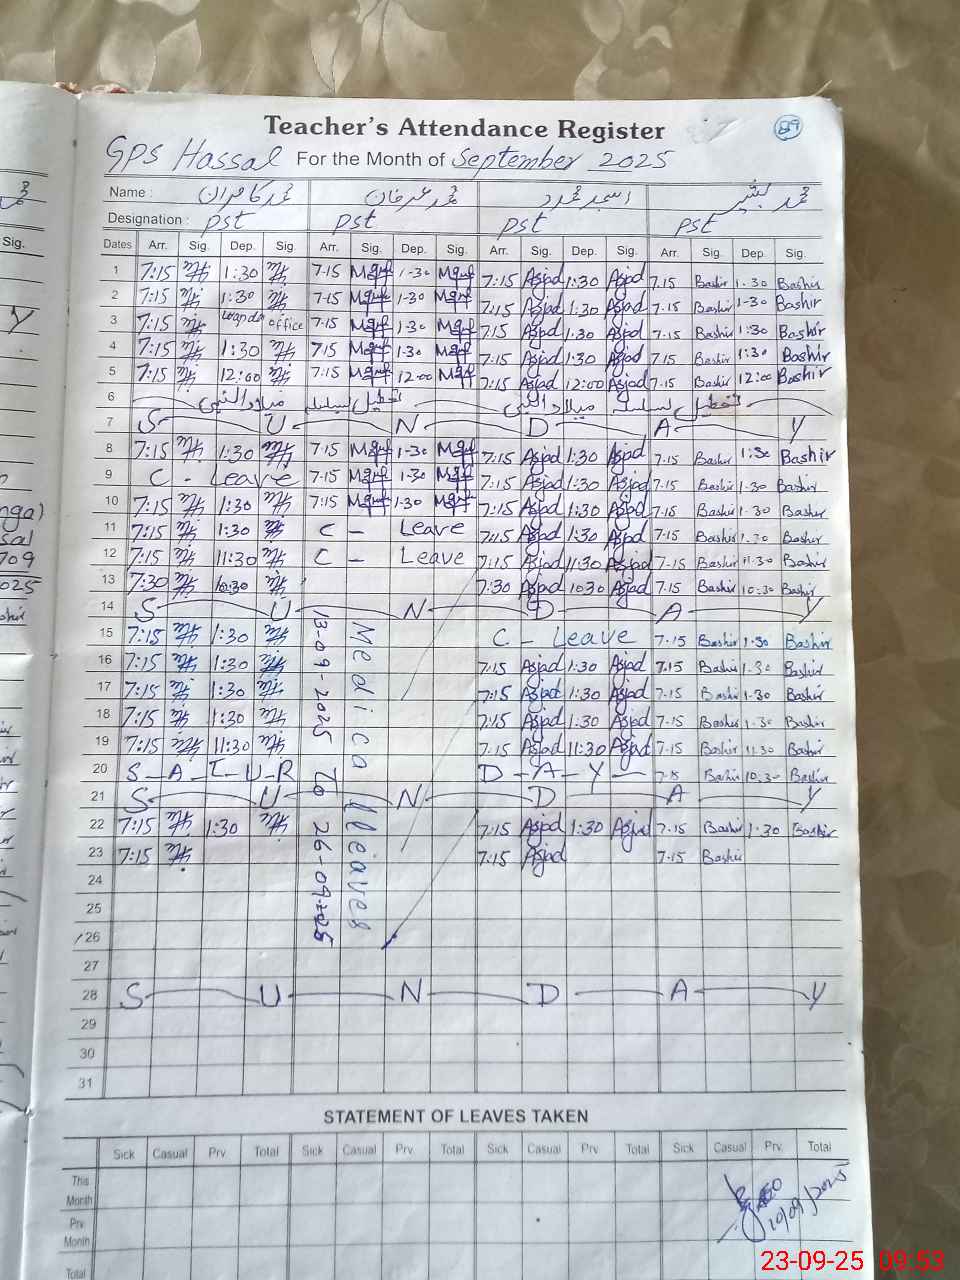 Teacher's Attendance Register
89
GPS Hassal For the Month of September 2025
Name : محمد کامران محمد عمر خان اسجد محمود محمد بشیر
Designation : PST PST PST PST
Dates Arr. Sig. Dep. Sig. Arr. Sig. Dep. Sig. Arr. Sig. Dep. Sig. Arr. Sig. Dep. Sig.
1 7:15 1:30 7-15 1-30 7:15 Asjad 1:30 Asjad 7.15 Bashir 1.30 Bashir
2 7:15 1:30 7-15 1-30 7:15 Asjad 1:30 Asjad 7-15 Bashir 1-30 Bashir
3 7:15 office 7-15 1-30 7:15 Asjad 1:30 Asjad 7-15 Bashir 1:30 Bashir
4 7:15 1:30 7-15 1-30 7:15 Asjad 1:30 Asjad 7-15 Bashir 1:30 Bashir
5 7:15 12:00 7-15 12-00 7:15 Asjad 12:00 Asjad 7-15 Bashir 12:00 Bashir
6 میلاد النبی تعطیل بسلسلہ میلاد النبی تعطیل بسلسلہ
7 S U N D A Y
8 7:15 1:30 7-15 1-30 7:15 Asjad 1:30 Asjad 7-15 Bashir 1:30 Bashir
9 C - Leave 7-15 1-30 7:15 Asjad 1:30 Asjad 7-15 Bashir 1-30 Bashir
10 7:15 1:30 7-15 1-30 7:15 Asjad 1:30 Asjad 7-15 Bashir 1-30 Bashir
11 7:15 1:30 C - Leave 7:15 Asjad 1:30 Asjad 7-15 Bashir 1.30 Bashir
12 7:15 11:30 C - Leave 7:15 Asjad 11:30 Asjad 7-15 Bashir 11.30 Bashir
13 7:30 10:30 7:30 Asjad 10:30 Asjad 7-15 Bashir 10:30 Bashir
14 S U N D A Y
13-09-2025 To 26-09-2025
Medical leaves
15 7:15 1:30 C - Leave 7-15 Bashir 1-30 Bashir
16 7:15 1:30 7:15 Asjad 1:30 Asjad 7-15 Bashir 1-30 Bashir
17 7:15 1:30 7:15 Asjad 1:30 Asjad 7-15 Bashir 1-30 Bashir
18 7:15 1:30 7:15 Asjad 1:30 Asjad 7-15 Bashir 1-30 Bashir
19 7:15 11:30 7:15 Asjad 11:30 Asjad 7-15 Bashir 11.30 Bashir
20 S-A-T-U-R D-A-Y 7-15 Bashir 10.30 Bashir
21 S U N D A Y
22 7:15 1:30 7:15 Asjad 1:30 Asjad 7-15 Bashir 1-30 Bashir
23 7:15 7:15 Asjad 7-15 Bashir
24
25
26
27
28 S U N D A Y
29
30
31
STATEMENT OF LEAVES TAKEN
Sick Casual Prv Total Sick Casual Prv. Total Sick Casual Prv. Total Sick Casual Prv. Total
This Month
Prv. Month
Total
10/09/2025
23-09-25 09:53